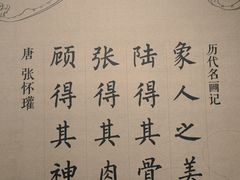 历代名画记
象人之美
陆得其骨
张得其肉
顾得其神
唐 张怀瓘